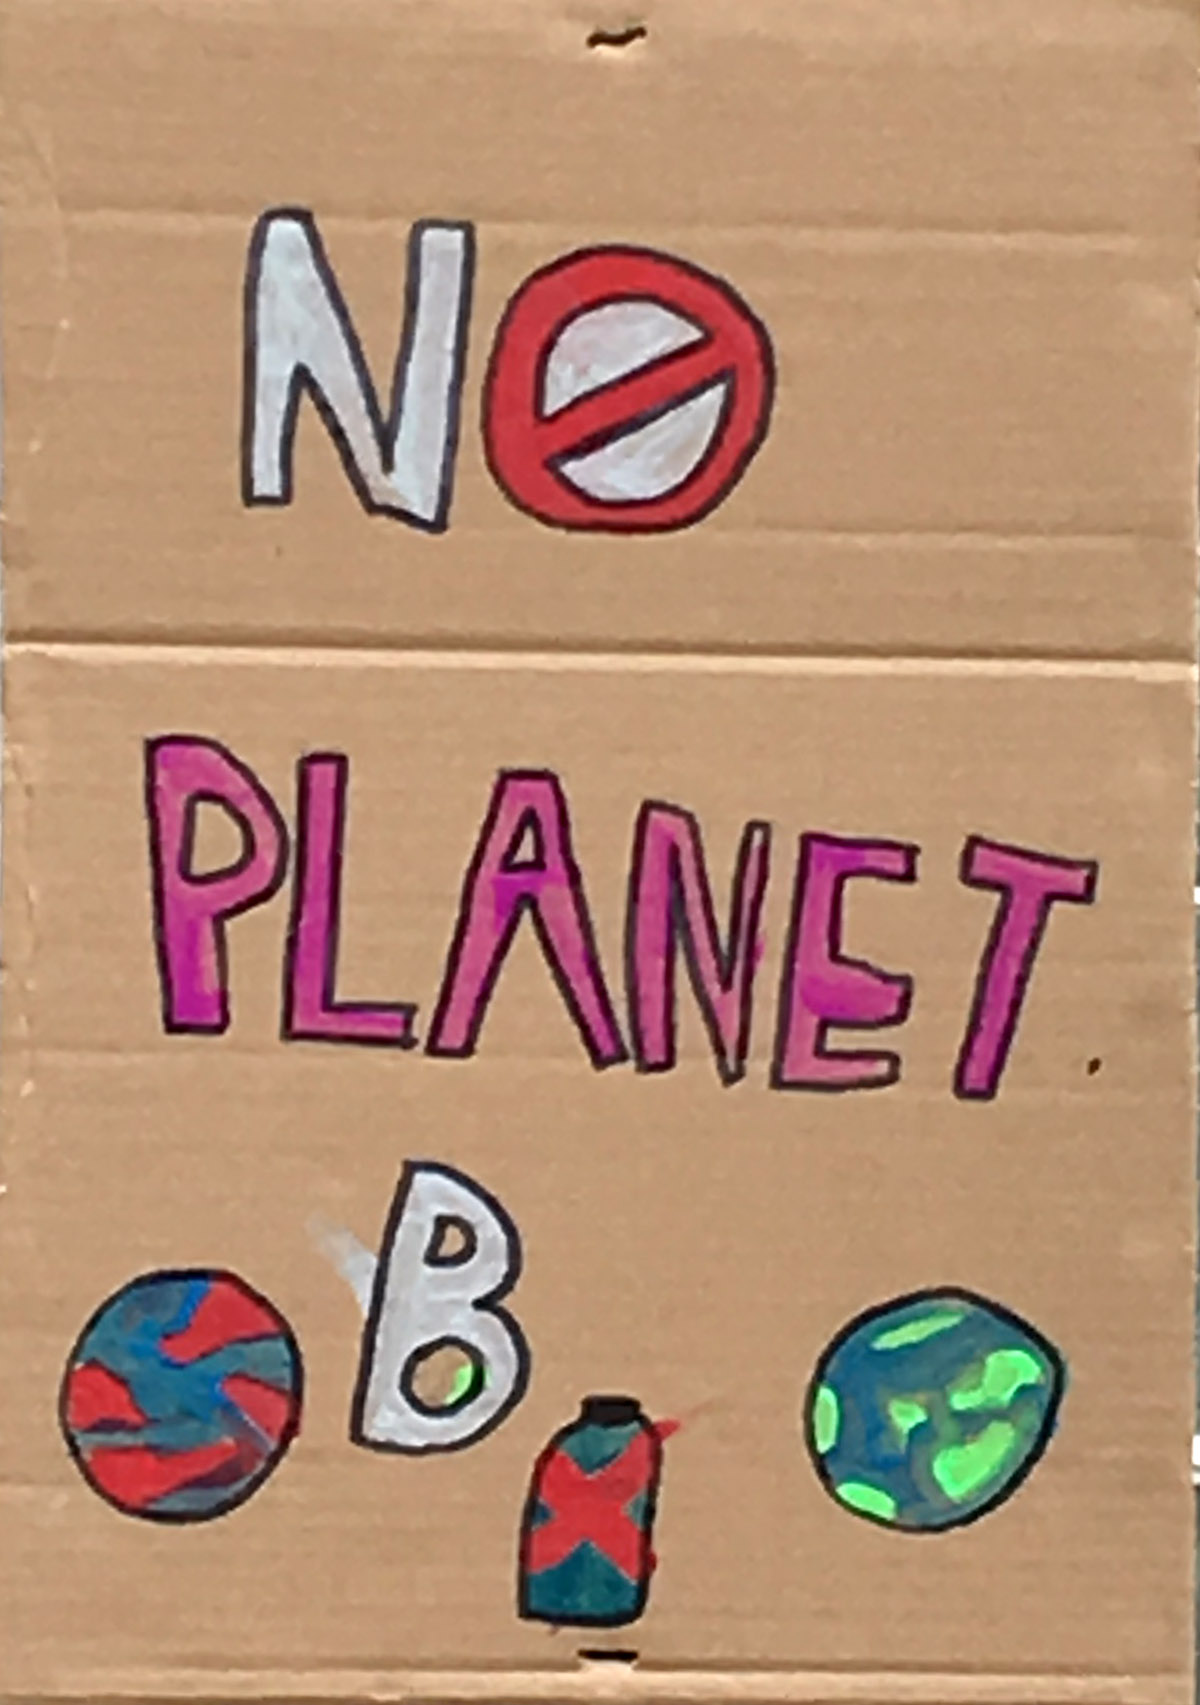 NO
PLANET.
B